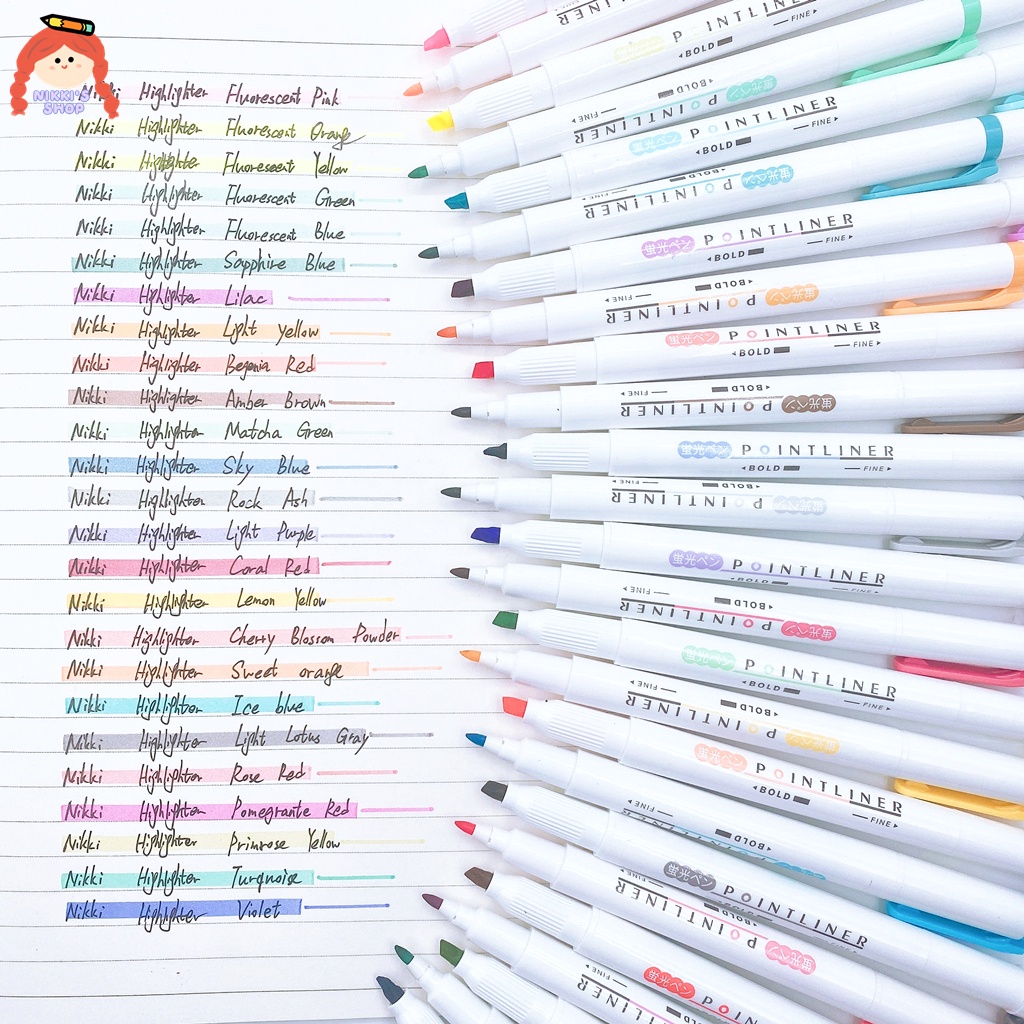 NIKKI'S
SHOP
Nikki Highlighter Fluorescent Pink
Nikki Highlighter Fluorescent Orange
Nikki Highlighter Fluorescent Yellow
Nikki Highlighter Fluorescent Green
Nikki Highlighter Fluorescent Blue
Nikki Highlighter Sapphire Blue
Nikki Highlighter Lilac
Nikki Highlighter Light yellow
Nikki Highlighter Begonia Red
Nikki Highlighter Amber Brown
Nikki Highlighter Matcha Green
Nikki Highlighter Sky Blue
Nikki Highlighter Rock Ash
Nikki Highlighter Light Purple
Nikki Highlighter Coral Red
Nikki Highlighter Lemon Yellow
Nikki Highlighter Cherry Blossom Powder
Nikki Highlighter Sweet orange
Nikki Highlighter Ice blue
Nikki Highlighter Light Lotus Gray
Nikki Highlighter Rose Red
Nikki Highlighter Pomegrante Red
Nikki Highlighter Primrose Yellow
Nikki Highlighter Turquoise
Nikki Highlighter Violet
POINTLINER
POINTLINER
BOLD FINE
蛍光ペン POINTLINER
BOLD FINE
蛍光ペン POINTLINER
BOLD FINE
蛍光ペン POINTLINER
BOLD FINE
蛍光ペン POINTLINER
BOLD FINE
蛍光ペン POINTLINER
BOLD FINE
蛍光ペン POINTLINER
BOLD FINE
蛍光ペン POINTLINER
BOLD FINE
蛍光ペン POINTLINER
BOLD FINE
蛍光ペン POINTLINER
BOLD FINE
蛍光ペン POINTLINER
BOLD FINE
蛍光ペン POINTLINER
BOLD FINE
蛍光ペン POINTLINER
BOLD FINE
蛍光ペン POINTLINER
BOLD FINE
蛍光ペン POINTLINER
BOLD FINE
蛍光ペン POINTLINER
BOLD FINE
POINTLINER
BOLD FINE
蛍光ペン POINTLINER
蛍光ペン POINTLINER
BOLD
蛍光ペン POINTLINER
FINE